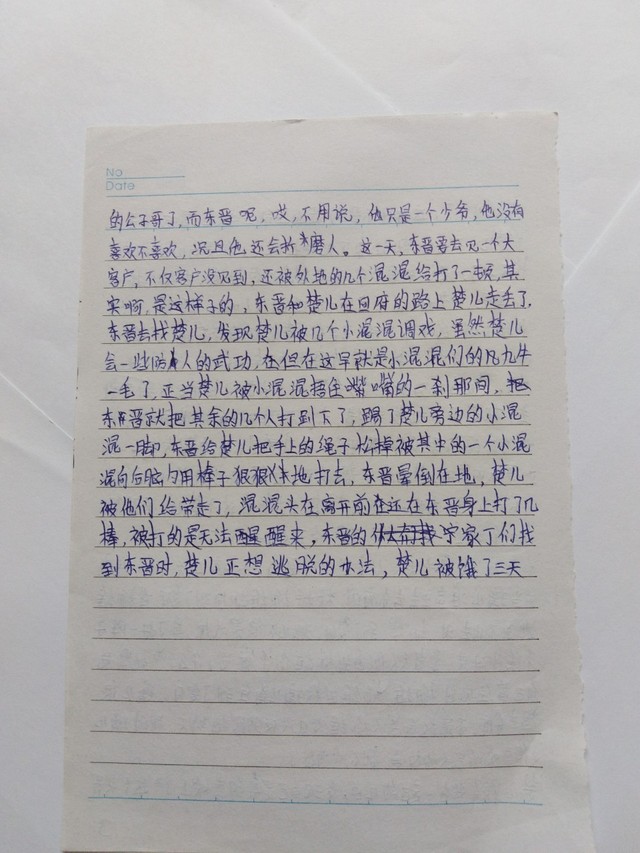 No
Date
的公子哥了,而东晋呢,哎,不用说,他只是一个少爷,也没有
喜欢不喜欢,况且他还会折磨人。这一天,东晋要去见一个大
客户,不仅客户没见到,还被外地的几个混混给打了一顿,其
实啊,是这样子的,东晋和楚儿在回府的路上楚儿走丢了,
东晋去找楚儿,发现楚儿被几个小混混调戏,虽然楚儿
会一些防人的武功,但在这早就是小混混们的凡九牛
一毛了,正当楚儿被小混混捂住嘴的一刹那间,
东晋就把其余的几个人打到下了,踢了楚儿旁边的小混
混一脚,东晋给楚儿把手上的绳子松掉被其中的一个小混
混向后脑勺用棒子狠狠地打去,东晋晕倒在地,楚儿
被他们给带走了,混混头在离开前还在东晋身上打了几
棒,被打的是无法醒来,东晋的家丁们找
到东晋时,楚儿正想逃脱的办法,楚儿被饿了三天